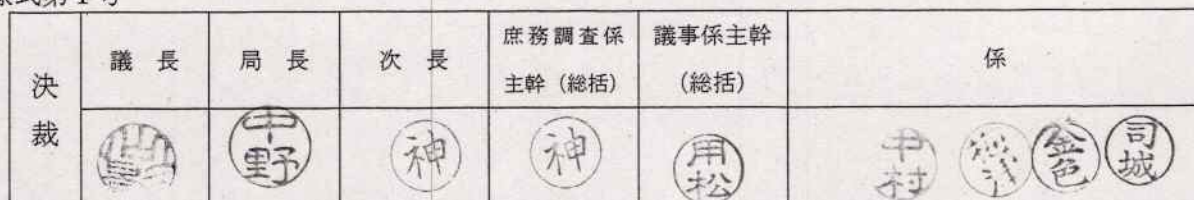 様式第1号
決裁
議長
局長
次長
庶務調査係
主幹（総括）
議事係主幹
（総括）
係
中野
神
神
用松
中村
金色
司城